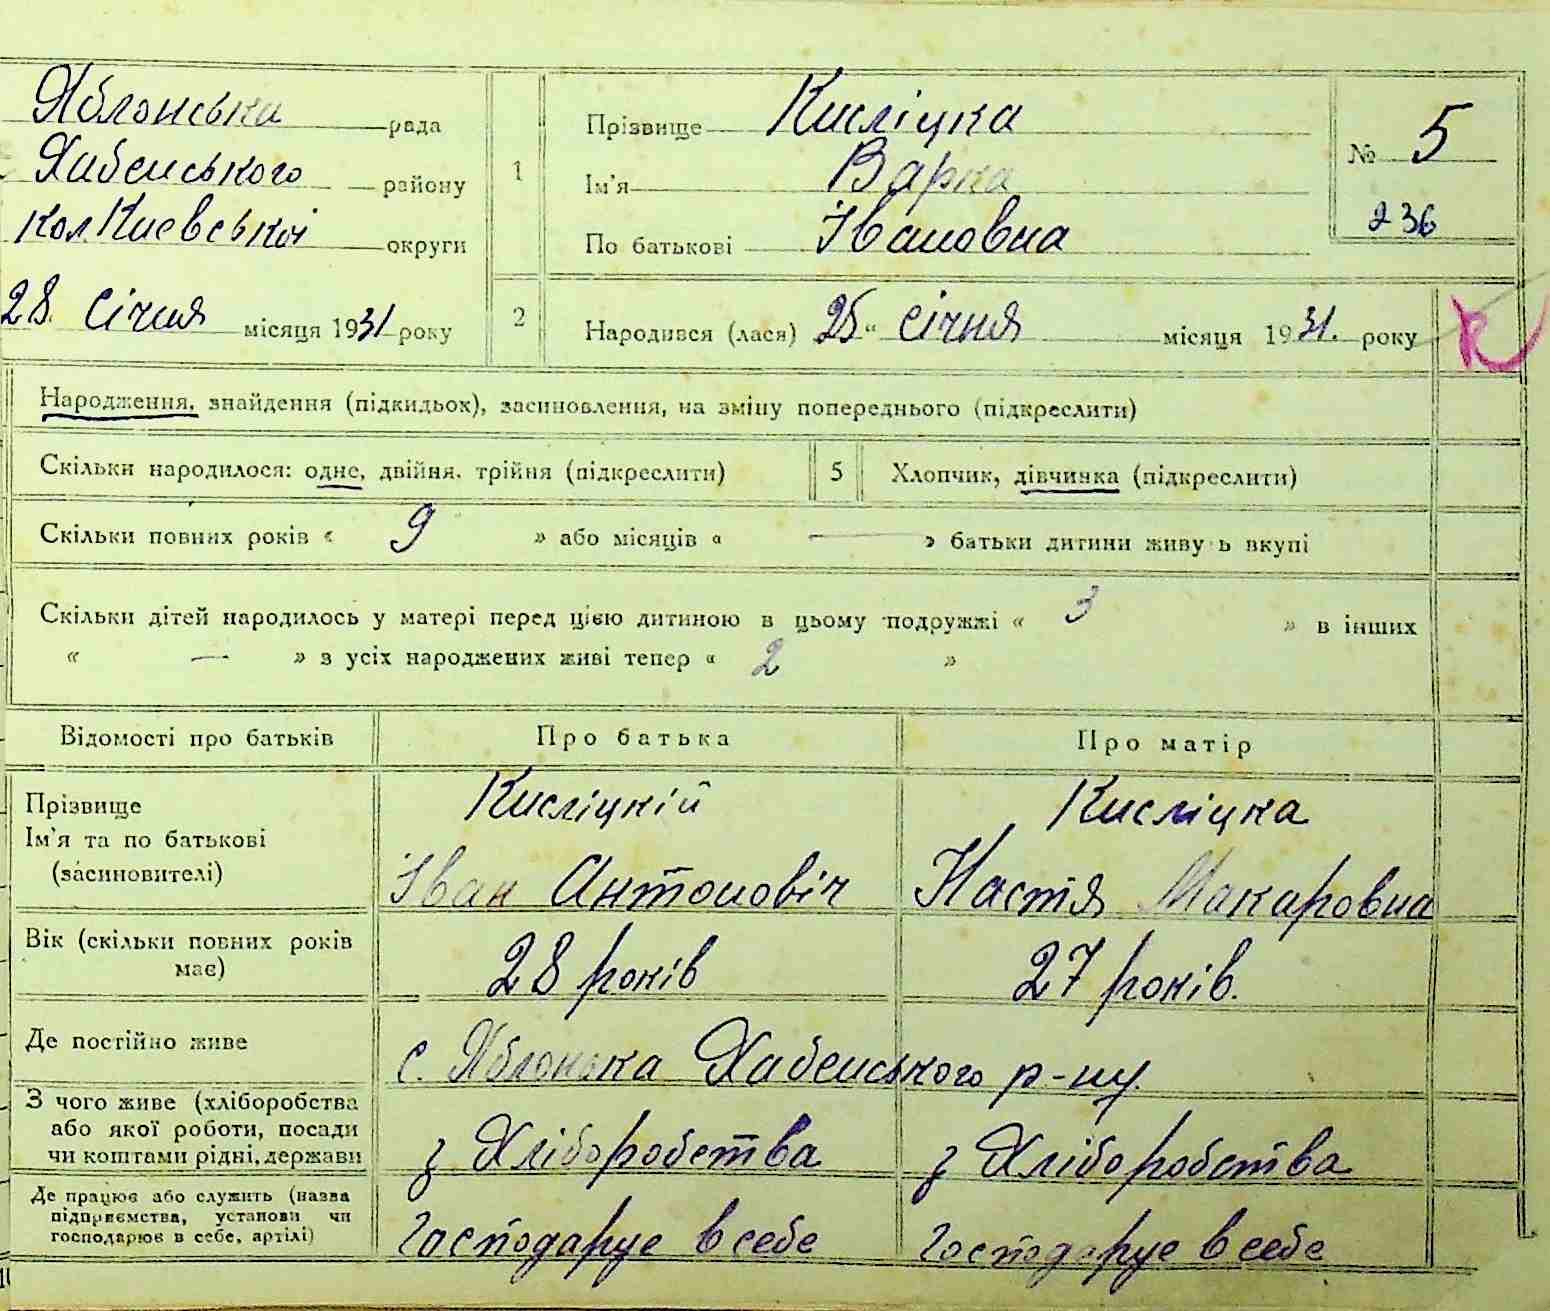 Яблонська рада
Хабенського району
кол. Киевської округи
28. Січня місяця 1931 року
1
Прізвище Кисліцка
Ім'я Варка
По батькові Івановна
№ 5
236
2
Народився (лася) 25 " Січня місяця 1931. року
Народження, знайдення (підкидьох), засиновлення, на зміну попереднього (підкреслити)
Скільки народилося: одне, двійня. трійня (підкреслити)
5
Хлопчик, дівчинка (підкреслити)
Скільки повних років « 9 » або місяців « — » батьки дитини живуть вкупі
Скільки дітей народилось у матері перед цією дитиною в цьому подружжі « 3 » в інших
« — » з усіх народжених живі тепер « 2 »
Відомості про батьків
Про батька
Про матір
Прізвище
Ім'я та по батькові
(засиновителі)
Кисліцкій
Іван Антоновіч
Кисліцка
Настя Макаровна
Вік (скільки повних років
має)
28 років
27 років.
Де постійно живе
с. Яблонька Хабенського р-ну.
З чого живе (хліборобства
або якої роботи, посади
чи коштами рідні, держави
з Хліборобства
з Хліборобства
Де працює або служить (назва
підприємства, установи чи
господарює в себе, артілі)
Господарує в себе
Господарує в себе